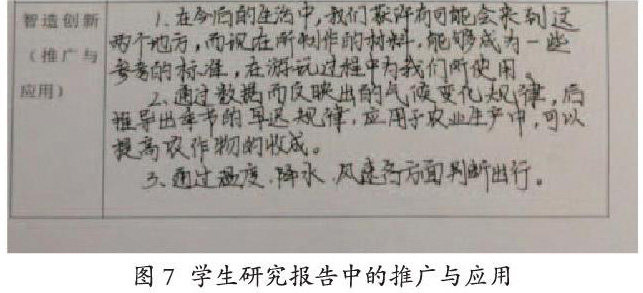 智造创新
（推广与
应用）
1.在今后的生活中,我们或许有可能会来到这
两个地方,而现在所制作的材料.能够成为一些
参考的标准,在游玩过程中为我们所使用
2、通过数据而反映出的气候变化规律,后
推导出季节的 规律,应用于农业生产中,可以
提高农作物的收成。
3、通过温度、降水、风速等方面判断出行。
图 7 学生研究报告中的推广与应用